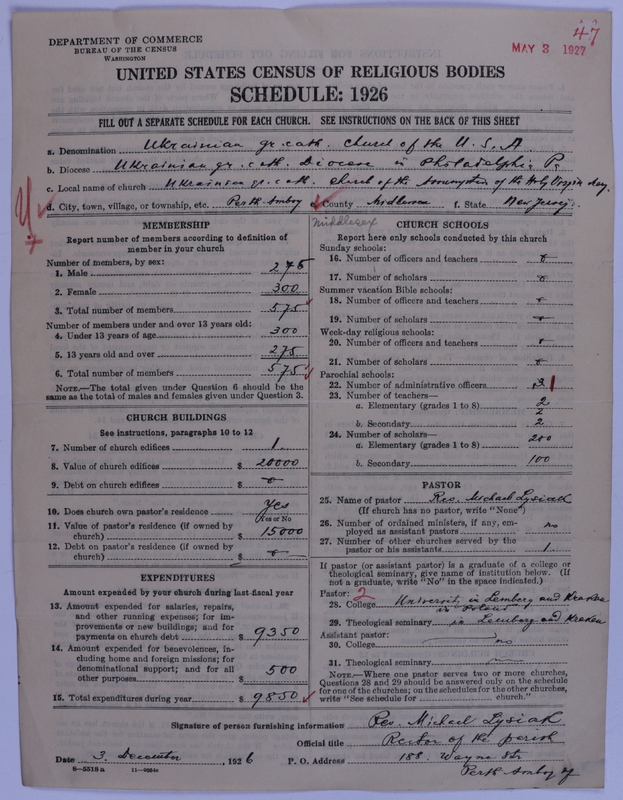 47
MAY 3 1927
DEPARTMENT OF COMMERCE
BUREAU OF THE CENSUS
WASHINGTON
UNITED STATES CENSUS OF RELIGIOUS BODIES
SCHEDULE: 1926
FILL OUT A SEPARATE SCHEDULE FOR EACH CHURCH. SEE INSTRUCTIONS ON THE BACK OF THIS SHEET
a. Denomination Ukrainian gr. cath. Church of the U. S. A
b. Diocese Ukrainian gr. cath. Diocese in Philadelphia Pa
c. Local name of church Ukrainian gr. cath. Church of the Assumption of the Holy Virgin
d. City, town, village, or township, etc. Perth Amboy e. County f. State New Jersey
Middlesex
MEMBERSHIP
Report number of members according to definition of
member in your church
Number of members, by sex:
1. Male 275
2. Female 300
3. Total number of members 575
Number of members under and over 13 years old:
4. Under 13 years of age 300
5. 13 years old and over 275
6. Total number of members 575
NOTE.—The total given under Question 6 should be the
same as the total of males and females given under Question 3.
CHURCH BUILDINGS
See instructions, paragraphs 10 to 12
7. Number of church edifices 1
8. Value of church edifices $ 20000
9. Debt on church edifices $
10. Does church own pastor's residence Yes
Yes or No
11. Value of pastor's residence (if owned by
church) $ 15000
12. Debt on pastor's residence (if owned by
church) $
EXPENDITURES
Amount expended by your church during last fiscal year
13. Amount expended for salaries, repairs,
and other running expenses; for im-
provements or new buildings; and for
payments on church debt $ 9350
14. Amount expended for benevolences, in-
cluding home and foreign missions; for
denominational support; and for all
other purposes $ 500
15. Total expenditures during year $ 9850
CHURCH SCHOOLS
Report here only schools conducted by this church
Sunday schools:
16. Number of officers and teachers
17. Number of scholars
Summer vacation Bible schools:
18. Number of officers and teachers
19. Number of scholars
Week-day religious schools:
20. Number of officers and teachers
21. Number of scholars
Parochial schools:
22. Number of administrative officers 1
23. Number of teachers—
a. Elementary (grades 1 to 8) 2
2
b. Secondary 2
24. Number of scholars—
a. Elementary (grades 1 to 8) 200
b. Secondary 100
PASTOR
25. Name of pastor Rev. Michael Lysiak
(If church has no pastor, write "None")
26. Number of ordained ministers, if any, em-
ployed as assistant pastors no
27. Number of other churches served by the
pastor or his assistants 1
If pastor (or assistant pastor) is a graduate of a college or
theological seminary, give name of institution below. (If
not a graduate, write "No" in the space indicated.)
Pastor: 2
28. College University in Lemberg and Krakow
29. Theological seminary in Lemberg and Krakow
Assistant pastor:
30. College no
31. Theological seminary
NOTE.—Where one pastor serves two or more churches,
Questions 28 and 29 should be answered only on the schedule
for one of the churches; on the schedules for the other churches,
write "See schedule for church."
Signature of person furnishing information Rev. Michael Lysiak
Official title Rector of the parish
Date 3. December, 1926 P. O. Address 188 Wayne Str
Perth Amboy
8—5518 a